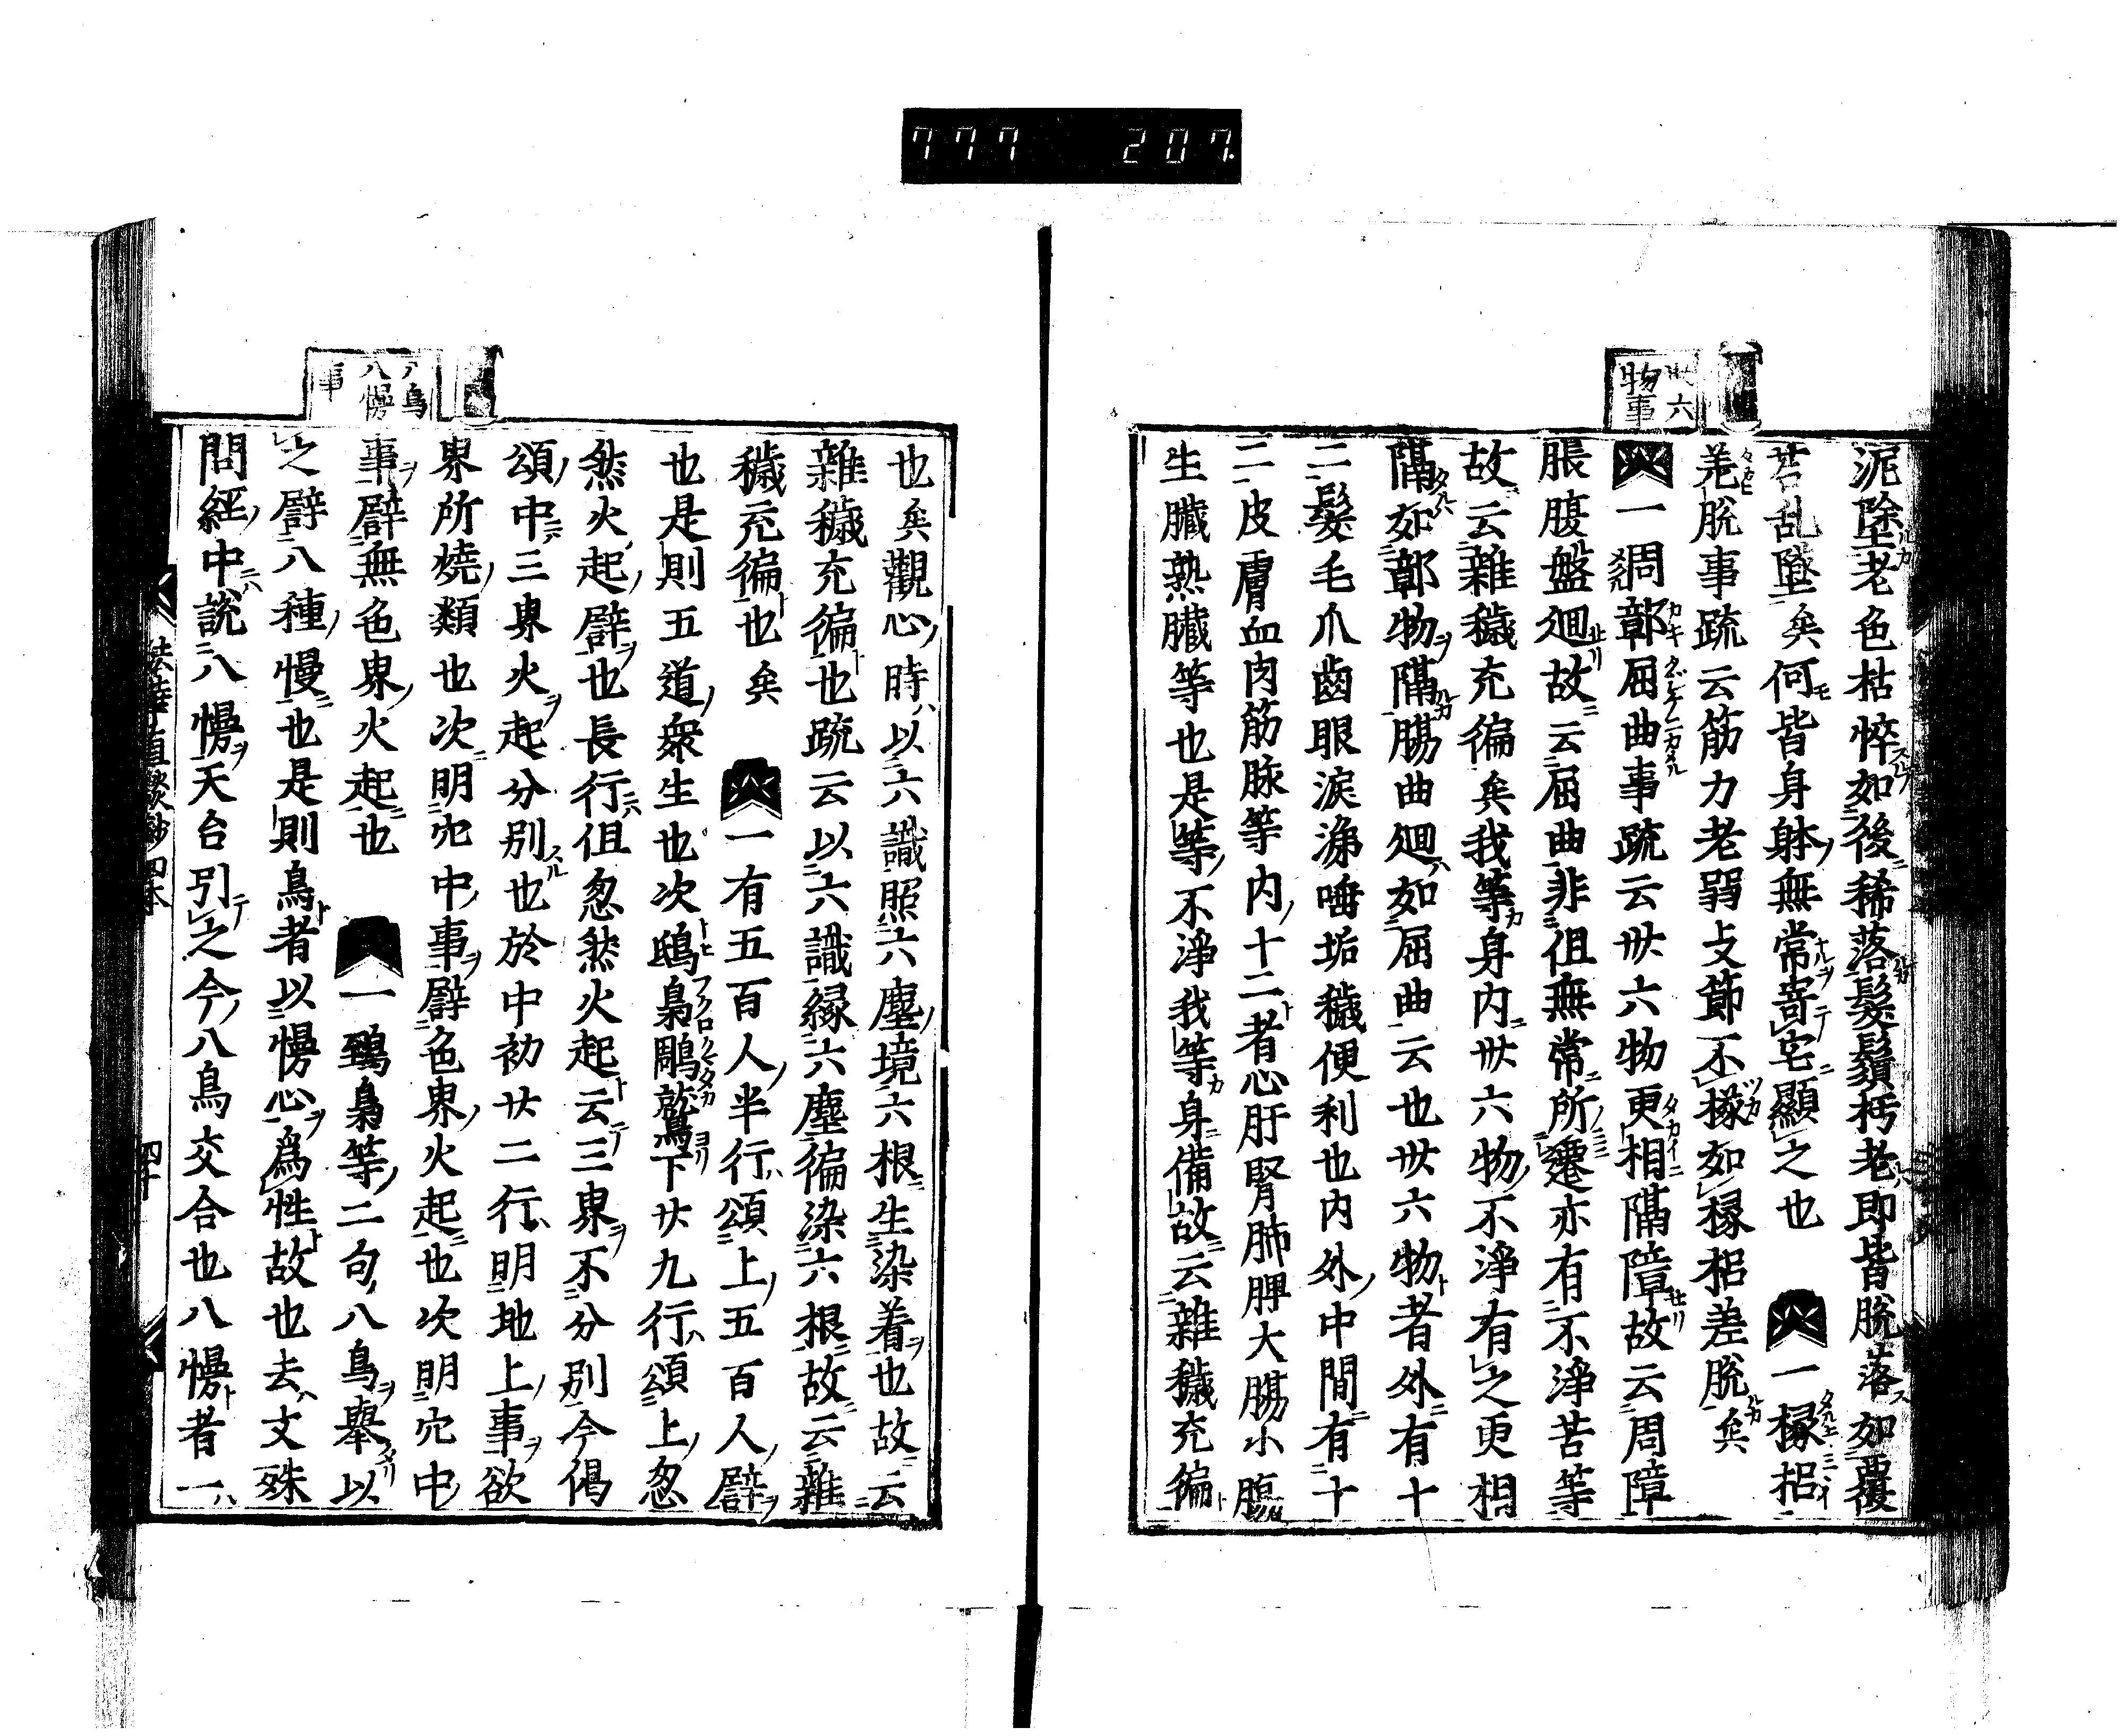 777 207.
卅六
物事
泥墜老色枯悴如後稀落髮鬚朽老即皆脱落如覆
苫乱墜矣何皆身躰無常寄宅顯之也 一椽梠
差脱事疏云筋力老弱攴節不椽如椽梠差脱矣
一周鄣屈曲事疏云卅六物更相隔障故云周障
脹腹盤廻故云屈曲非但無常所遷亦有不淨苦等
故云雜穢充徧矣我等身内卅六物不淨有之更相
隔如鄣物隔腸曲廻如屈曲云也卅六物者外有十
二髮毛爪齒眼淚涕唾垢穢便利也内外中間有十
二皮膚血肉筋脉等内十二者心肝腎肺脾大腸小腹
生臟熟臟等也是等不淨我等身備故云雜穢充徧
八鳥
八慢
事
也矣觀心時以六識照六塵境六根生染着也故云
雜穢充徧也疏云以六識緣六塵徧染六根故云雜
穢充徧也矣 一有五百人半行頌上五百人譬
也是則五道衆生也次鴟梟鵰鷲下廿九行頌上忽
然火起譬也長行但忽然火起云三界不分別今偈
頌中三界火起分別也於中初廿二行明地上事欲
界所燒類也次明穴中事譬色界火起也次明穴中
事譬無色界火起也 一鵄梟等二句八鳥舉以
之譬八種慢也是則鳥者以慢心爲性故也去文殊
問經中説八慢天台引之今八鳥交合也八慢者一
法華直談鈔四本 四十